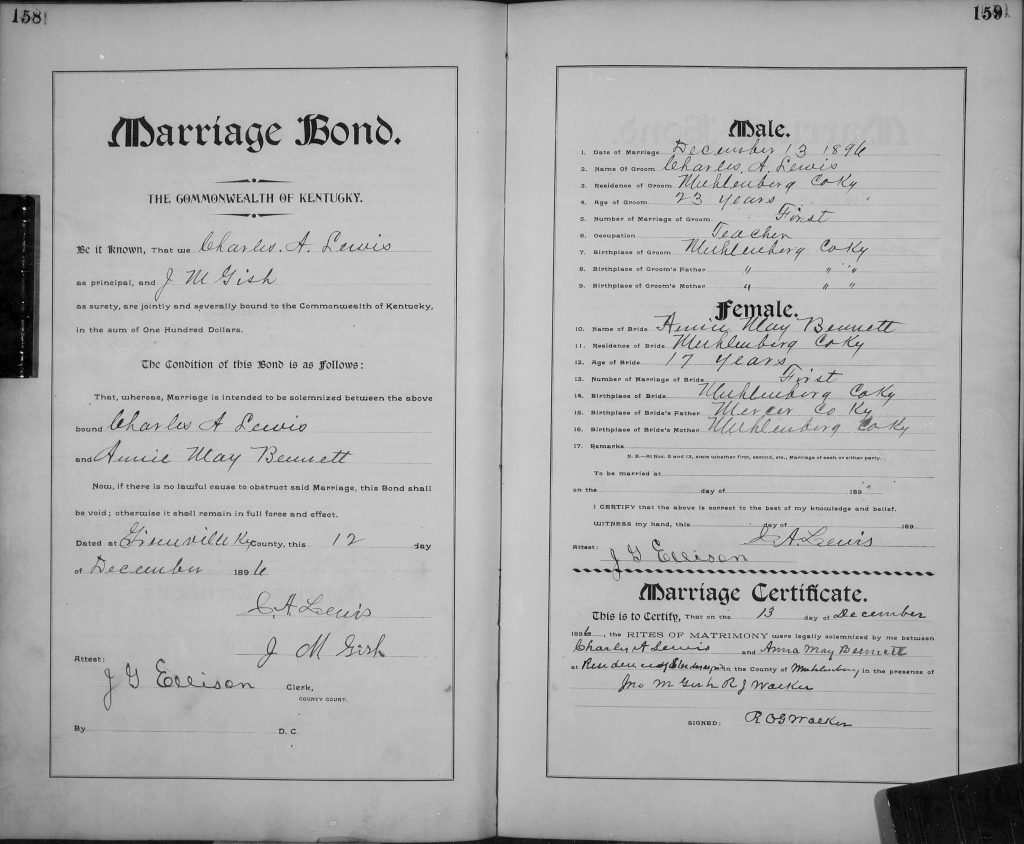 158
Marriage Bond.
THE COMMONWEALTH OF KENTUCKY.
Be it Known, That we Charles. A. Lewis
as principal, and J M Gish
as surety, are jointly and severally bound to the Commonwealth of Kentucky,
in the sum of One Hundred Dollars.
The Condition of this Bond is as Follows:
That, whereas, Marriage is intended to be solemnized between the above
bound Charles A Lewis
and Annie May Bennett
Now, if there is no lawful cause to obstruct said Marriage, this Bond shall
be void; otherwise it shall remain in full force and effect.
Dated at Greenville Ky County, this 12 day
of December 1896
C. A. Lewis
J M Gish
Attest:
J G Ellison Clerk,
COUNTY COURT.
By D. C.
159
Male.
1. Date of Marriage December 13 1896
2. Name Of Groom Charles. A. Lewis
3. Residence of Groom Muhlenberg Co Ky
4. Age of Groom 23 years
5. Number of Marriage of Groom First
6. Occupation Teacher
7. Birthplace of Groom Muhlenberg Co Ky
8. Birthplace of Groom's Father " " "
9. Birthplace of Groom's Mother " " "
Female.
10. Name of Bride Annie May Bennett
11. Residence of Bride Muhlenberg Co Ky
12. Age of Bride 17 years
13. Number of Marriage of Bride First
14. Birthplace of Bride Muhlenberg Co Ky
15. Birthplace of Bride's Father Mercer Co Ky
16. Birthplace of Bride's Mother Muhlenberg Co Ky
17. Remarks
N. B.—At Nos. 5 and 13, state whether first, second, etc., Marriage of each or either party.
To be married at
on the day of 189
I CERTIFY that the above is correct to the best of my knowledge and belief.
WITNESS my hand, this day of 189
C A Lewis
Attest:
J G Ellison
Marriage Certificate.
This is to Certify, That on the 13 day of December
1896, the RITES OF MATRIMONY were legally solemnized by me between
Charly A Lewis and Anna May Bennett
at Residence of in the County of Muhlenberg in the presence of
Jno M Gish R J Walker
SIGNED: Walker